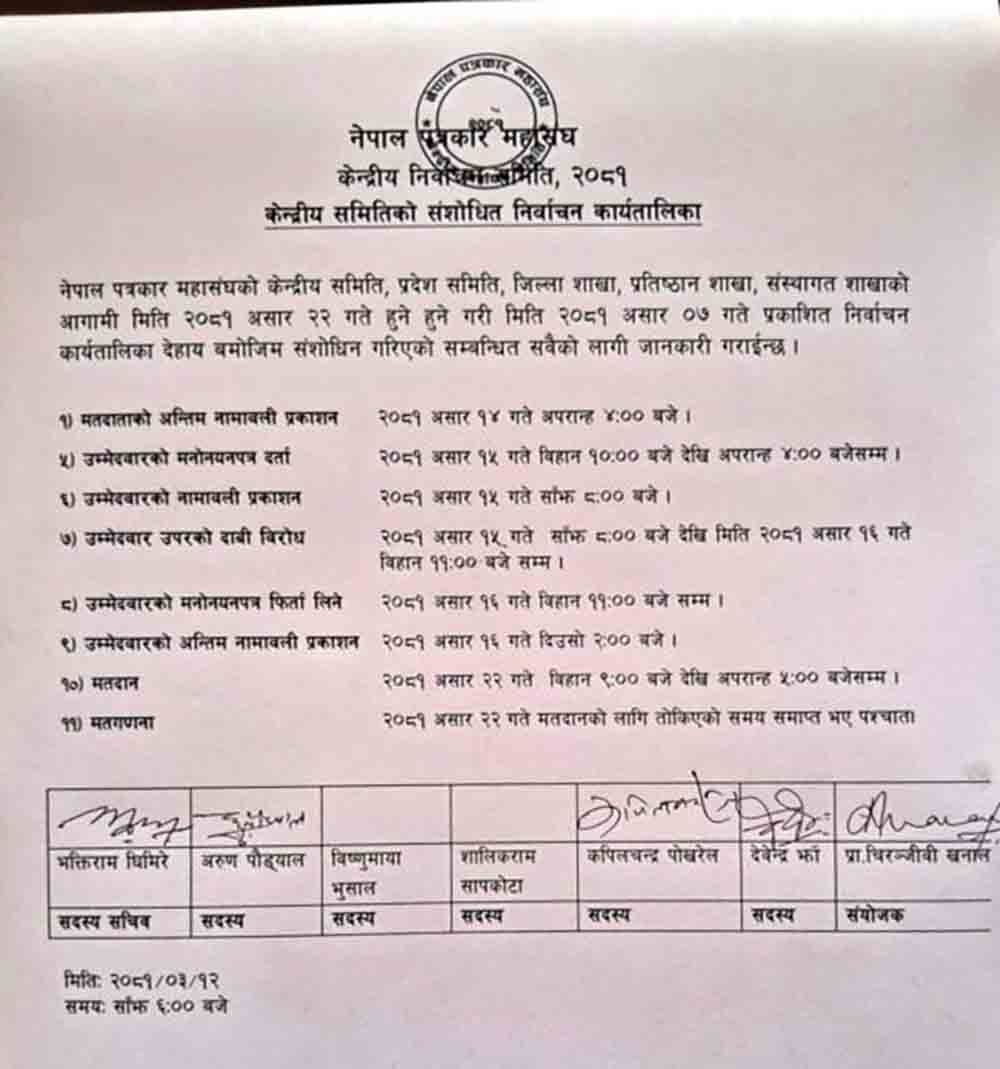 नेपाल पत्रकार महासंघ
२०८१
नेपाल पत्रकार महासंघ
केन्द्रीय निर्वाचन समिति, २०८१
केन्द्रीय समितिको संशोधित निर्वाचन कार्यतालिका
नेपाल पत्रकार महासंघको केन्द्रीय समिति, प्रदेश समिति, जिल्ला शाखा, प्रतिष्ठान शाखा, संस्थागत शाखाको
आगामी मिति २०८१ असार २२ गते हुने हुने गरी मिति २०८१ असार ०७ गते प्रकाशित निर्वाचन
कार्यतालिका देहाय बमोजिम संशोधिन गरिएको सम्बन्धित सवैको लागी जानकारी गराईन्छ ।
१) मतदाताको अन्तिम नामावली प्रकाशन २०८१ असार १४ गते अपरान्ह ४:०० बजे ।
५) उम्मेदवारको मनोनयनपत्र दर्ता २०८१ असार १५ गते विहान १०:०० बजे देखि अपरान्ह ४:०० बजेसम्म ।
६) उम्मेदवारको नामावली प्रकाशन २०८१ असार १५ गते साँझ ८:०० बजे ।
७) उम्मेदवार उपरको दाबी विरोध २०८१ असार १५ गते साँझ ८:०० बजे देखि मिति २०८१ असार १६ गते
विहान ११:०० बजे सम्म ।
८) उम्मेदवारको मनोनयनपत्र फिर्ता लिने २०८१ असार १६ गते विहान ११:०० बजे सम्म ।
९) उम्मेदवारको अन्तिम नामावली प्रकाशन २०८१ असार १६ गते दिउसो २:०० बजे ।
१०) मतदान २०८१ असार २२ गते विहान ९:०० बजे देखि अपरान्ह ५:०० बजेसम्म ।
११) मतगणना २०८१ असार २२ गते मतदानको लागि तोकिएको समय समाप्त भए पश्चात।
भक्तिराम घिमिरे अरुण पौड्याल विष्णुमाया शालिकराम कपिलचन्द्र पोखरेल देवेन्द्र झाँ प्रा.चिरञ्जीवी खनाल
भुसाल सापकोटा
सदस्य सचिव सदस्य सदस्य सदस्य सदस्य सदस्य संयोजक
मितिः २०८१/०३/१२
समयः साँझ ६:०० बजे